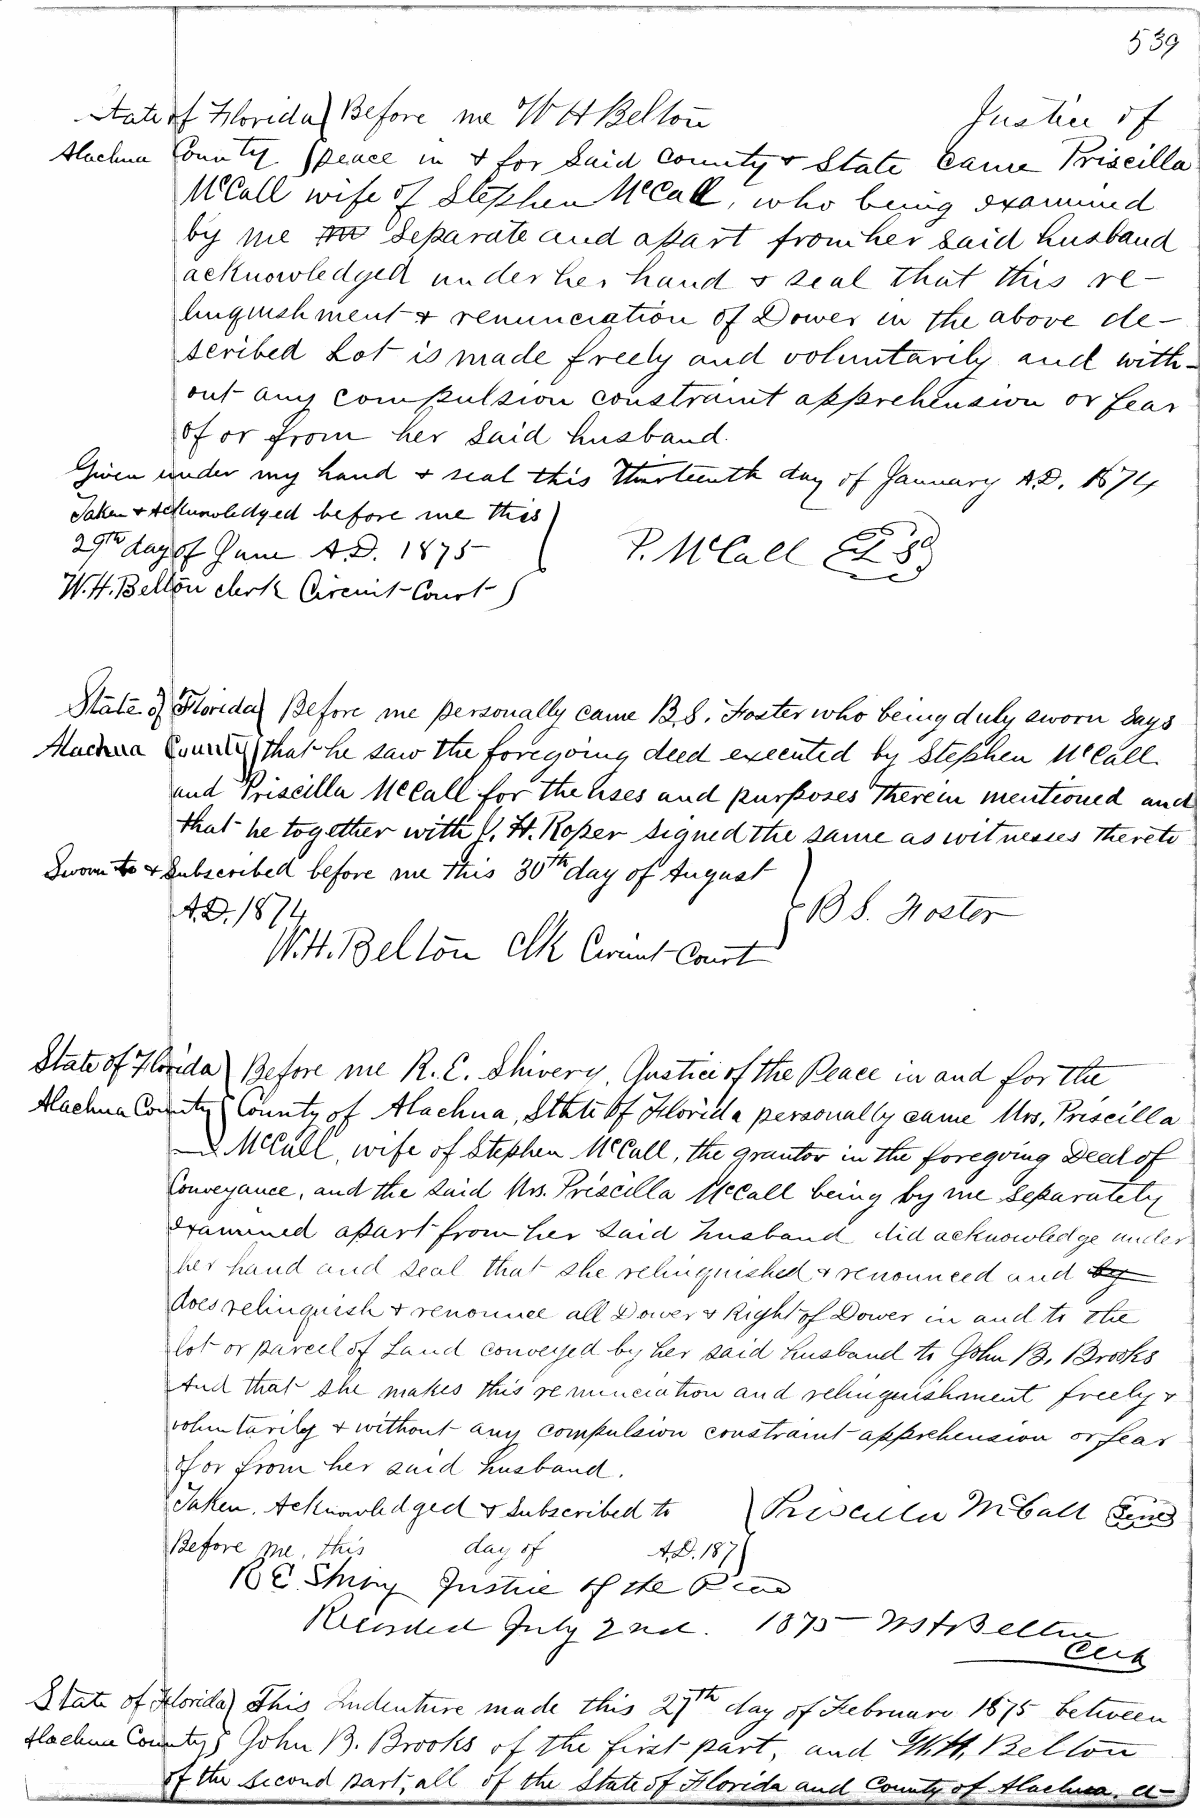 539
State of Florida } Before me W H Belton Justice of
Alachua County } peace in & for Said county & State came Priscilla
McCall wife of Stephen McCall, who being examined
by me Separate and apart from her said husband
acknowledged under her hand & seal that this re-
linquishment & renunciation of Dower in the above de-
scribed Lot is made freely and voluntarily and with-
out any compulsion constraint apprehension or fear
of or from her said husband.
Given under my hand & seal this Thirteenth day of January A.D. 1874
Taken & Acknowledged before me this }
29th day of June A.D. 1875 } P. McCall L S
W.H. Belton clerk Circuit Court }
State of Florida } Before me personally came B.S. Foster who being duly sworn Says
Alachua County } that he saw the foregoing deed executed by Stephen McCall
and Priscilla McCall for the uses and purposes therein mentioned and
that he together with J. H. Roper signed the same as witnesses thereto
Sworn to & Subscribed before me this 30th day of August }
A.D. 1874 } B S. Foster
W.H. Belton Clk Circuit Court
State of Florida } Before me R. E. Shivery, Justice of the Peace in and for the
Alachua County } County of Alachua, State of Florida personally came Mrs. Priscilla
McCall, wife of Stephen McCall, the grantor in the foregoing Deed of
Conveyance, and the said Mrs. Priscilla McCall being by me separately
examined apart from her said husband did acknowledge under
her hand and seal that she relinquished & renounced and by
does relinquish & renounce all Dower & Right of Dower in and to the
lot or parcel of Land conveyed by her said husband to John B. Brooks
And that she makes this renunciation and relinquishment freely &
voluntarily & without any compulsion constraint apprehension or fear
of or from her said husband.
Taken, Acknowledged & Subscribed to } Priscilla McCall Seal
Before me, this day of A.D. 187 }
R E Shivy Justice of the Peace
Recorded July 2nd. 1875 W H Belton
Clerk
State of Florida } This Indenture made this 27th day of February 1875 between
Alachua County } John B. Brooks of the first part, and W.H. Belton
of the second part, all of the State of Florida and County of Alachua. a-